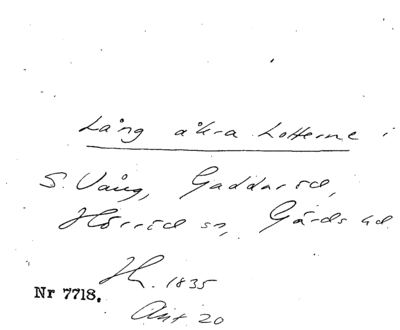 Lång åkra Lotterne i
S. Vång, Gaddaröd,
Hörröd sn, Gärds hd
H. 1835
Nr 7718.
Akt 20